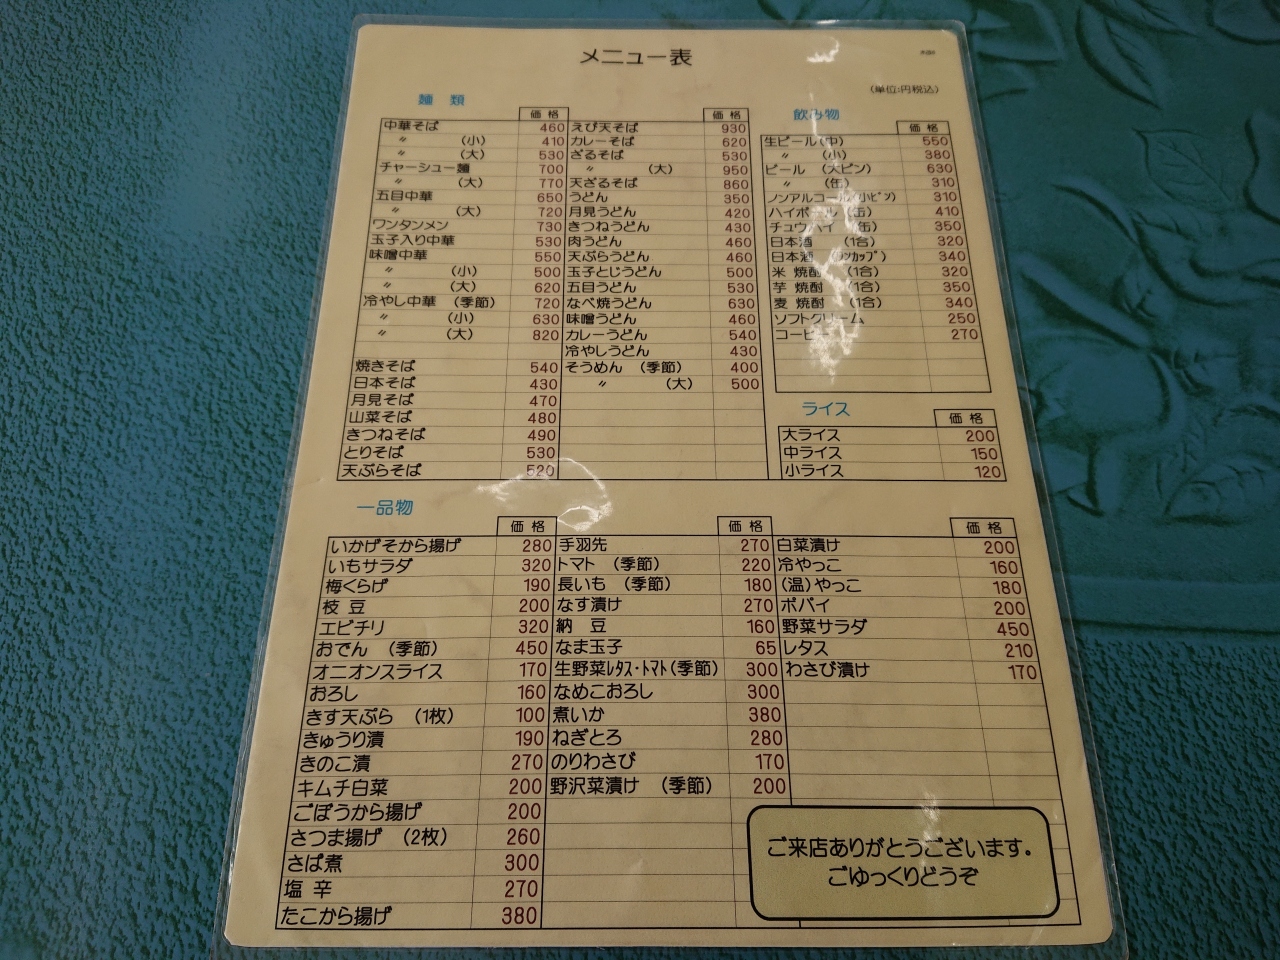 メニュー表
(単位:円税込)
麺 類
価 格
中華そば 460
〃 (小) 410
〃 (大) 530
チャーシュー麺 700
〃 (大) 770
五目中華 650
〃 (大) 720
ワンタンメン 730
玉子入り中華 530
味噌中華 550
〃 (小) 500
〃 (大) 620
冷やし中華 (季節) 720
〃 (小) 630
〃 (大) 820
焼きそば 540
日本そば 430
月見そば 470
山菜そば 480
きつねそば 490
とりそば 530
天ぷらそば 520
価 格
えび天そば 930
カレーそば 620
ざるそば 530
〃 (大) 950
天ざるそば 860
うどん 350
月見うどん 420
きつねうどん 430
肉うどん 460
天ぷらうどん 460
玉子とじうどん 500
五目うどん 530
なべ焼うどん 630
味噌うどん 460
カレーうどん 540
冷やしうどん 430
そうめん (季節) 400
〃 (大) 500
飲み物
価 格
生ビール(中) 550
〃 (小) 380
ビール (大ビン) 630
〃 (缶) 310
ノンアルコール(小ビン) 310
ハイボール(缶) 410
チュウハイ (缶) 350
日本酒 (1合) 320
日本酒 (ワンカップ) 340
米 焼酎 (1合) 320
芋 焼酎 (1合) 350
麦 焼酎 (1合) 340
ソフトクリーム 250
コーヒー 270
ライス
価 格
大ライス 200
中ライス 150
小ライス 120
一品物
価 格
いかげそから揚げ 280
いもサラダ 320
梅くらげ 190
枝 豆 200
エビチリ 320
おでん (季節) 450
オニオンスライス 170
おろし 160
きす天ぷら (1枚) 100
きゅうり漬 190
きのこ漬 270
キムチ白菜 200
ごぼうから揚げ 200
さつま揚げ (2枚) 260
さば煮 300
塩 辛 270
たこから揚げ 380
価 格
手羽先 270
トマト (季節) 220
長いも (季節) 180
なす漬け 270
納 豆 160
なま玉子 65
生野菜レタス・トマト(季節) 300
なめこおろし 300
煮いか 380
ねぎとろ 280
のりわさび 170
野沢菜漬け (季節) 200
価 格
白菜漬け 200
冷やっこ 160
(温)やっこ 180
ポパイ 200
野菜サラダ 450
レタス 210
わさび漬け 170
ご来店ありがとうございます。
ごゆっくりどうぞ